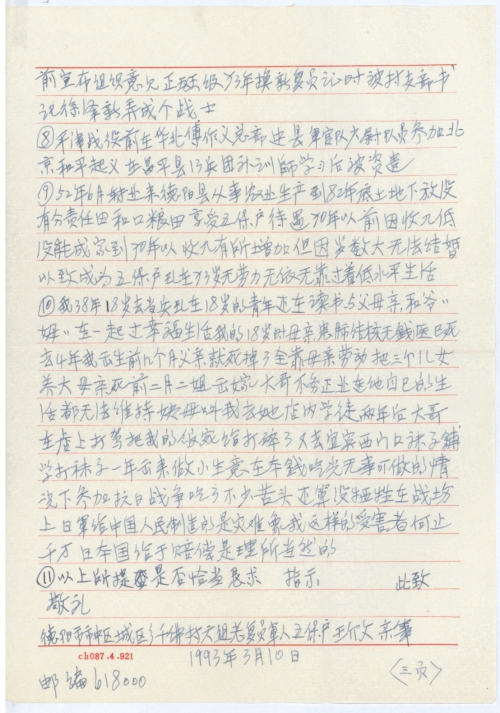 前宣布组织意见正班级73年换新复员证时被村支部书
记徐泽新弄成个战士
⑧平津战役前在华北傅作义总部 军官队 尉队员参加北
京和平起义在昌平县13兵团补训师学习后被资遣
⑨52年6月转业来德阳县从事农业生产到82年底土地下放没
有分责任田和口粮田享受五保户待遇70年以前因收入低
没能成家到70年以 收入有所增加但因岁数大无法结婚
以致成为五保户现在73岁无劳力无依无靠过着低水平生活
⑩我38年18岁去当兵现在18岁的青年还在读书与父母亲和爷〃
姆〃在一起过幸福生活我的18岁时母亲患肺结核无钱医已死
去4年我出生前几个月父亲就死掉了全靠母亲劳动把三个儿女
养大母亲死前二月二姐出嫁大哥不务正业连他自己的生
活都无法维持 母叫我去她店内学徒两年后大哥
在 上打 把我的 给打碎了又去宜宾西门口袜子铺
学打袜子一年出来做小生意在本钱吃光无事可做的情
况下参加抗日战争吃了不少苦头还算没牺牲在战场
上日军给中国人民制造的是灾难象我这样的受害者何止
千万日本国给予赔偿是理所当然的
⑪以上所提 是否恰当恳求 指示 此致
敬礼
德阳市市中区城区 千佛村六组老复员军人五保户王 文亲笔
ch087.4.921
1993年3月10日
邮编618000
〈三页〉